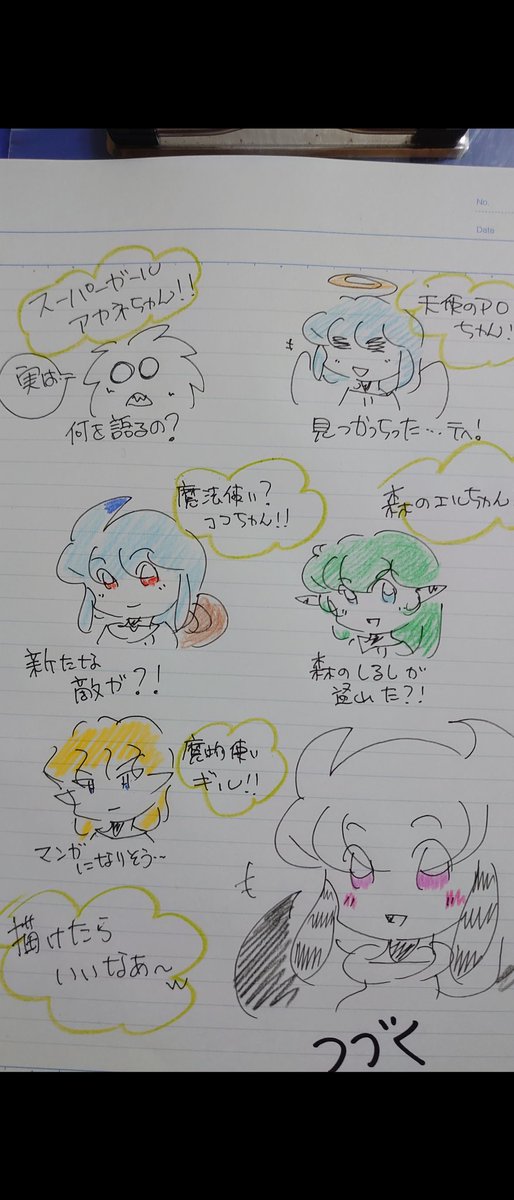 No.
Date
スーパーガール
アカネちゃん!!
実は〜
何を語るの?
天使のPO
ちゃん!
見つかっちった…テヘ!
魔法使い?
ココちゃん!!
新たな
敵が?!
森のエルちゃん
森のしるしが
盗山た?!
魔的使い
ギル!!
マンガ
になりそう〜
描けたら
いいなあ〜w
つづく